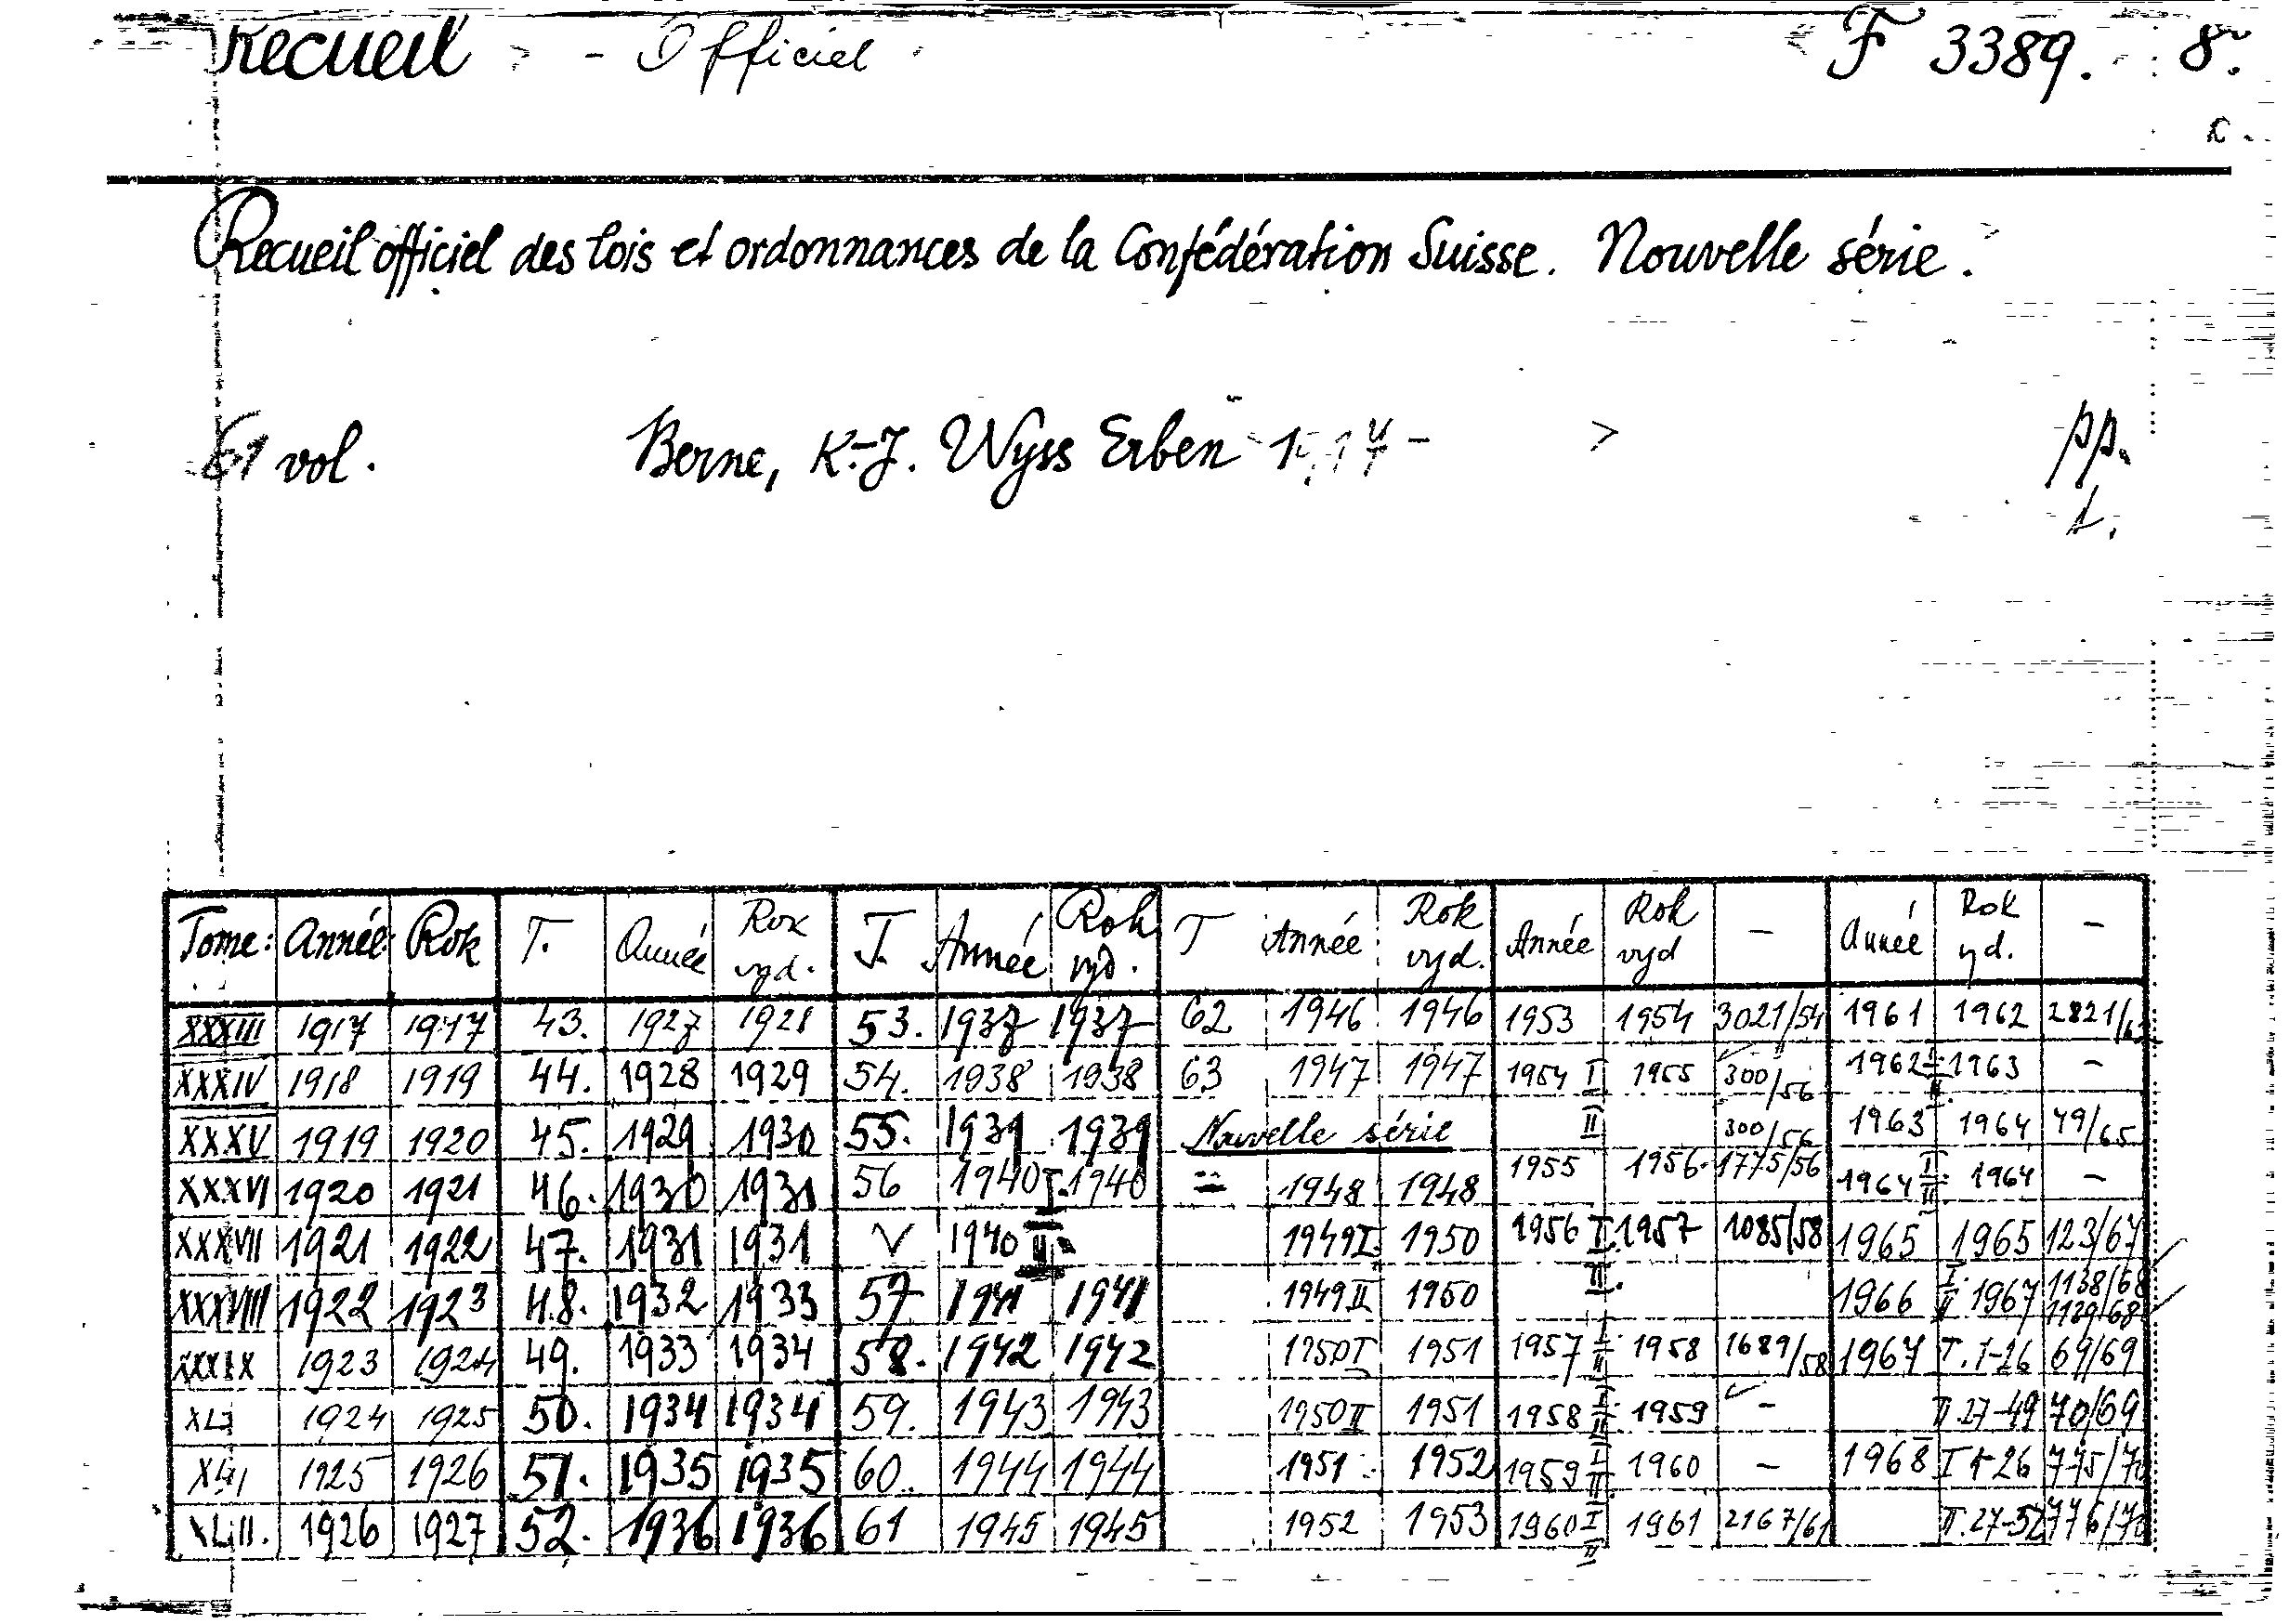 Recueil - Officiel F 3389. 8.
Recueil officiel des lois et ordonnances de la Confédération Suisse. Nouvelle série.
61 vol. Berne, K.-J. Wyss Erben 1917 - pp.
Tome: Année: Rok T. Année Rok vyd. T. Année Rok vyd. T Année Rok vyd. Année Rok vyd — Année Rok vyd. —
XXXIII 1917 1917 43. 1927 1928 53. 1937 1937 62 1946 1946 1953 1954 3021/54 1961 1962 2821/
XXXIV 1918 1919 44. 1928 1929 54. 1938 1938 63 1947 1947 1954 I 1955 300/56 1962 I II 1963 —
XXXV 1919 1920 45. 1929 1930 55. 1939 1939 Nouvelle série II 300/56 1963 1964 49/65
XXXVI 1920 1921 46. 1930 1931 56 1940 I. 1940 = 1948 1948 1955 1956 1775/56 1964 I II 1964 —
XXXVII 1921 1922 47. 1931 1931 V 1940 II 1949 I 1950 1956 I 1957 1085/58 1965 1965 123/67
XXXVIII 1922 1923 48. 1932 1933 57 1941 1941 1949 II 1950 II. 1966 I. II 1967 1138/68 1139/68
XXXIX 1923 1924 49. 1933 1934 58. 1942 1942 1950 I 1951 1957 I II 1958 1689/58 1967 I. 1-26 69/69
XL 1924 1925 50. 1934 1934 59. 1943 1943 1950 II 1951 1958 I II 1959 — II 27-49 70/69
XLI 1925 1926 51. 1935 1935 60. 1944 1944 1951 1952 1959 I II 1960 — 1968 I 1-26 775/70
XLII. 1926 1927 52. 1936 1936 61 1945 1945 1952 1953 1960 I II 1961 2167/61 II. 27-52 776/70